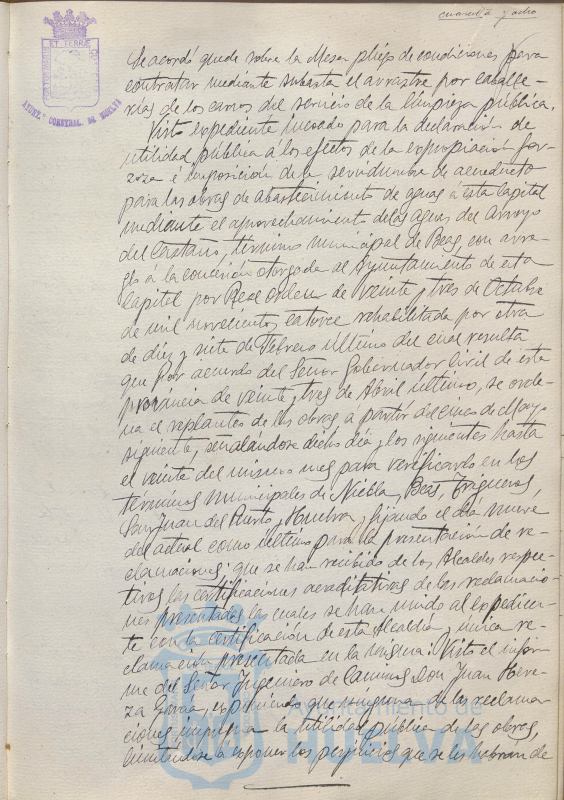 cuarenta y ocho
AYUNT.º CONSTNAL. DE HUELVA
Se acordó quede sobre la Mesa pliego de condiciones para
contratar mediante subasta el arrastre por caballe-
rías de los carros del servicio de la limpieza pública.
Visto expediente incoado para la declaración de
utilidad pública á los efectos de la expropiación for-
zoza é imposición de la servidumbre de acueducto
para las obras de abastecimiento de aguas á esta Capital
mediante el aprovechamiento de las aguas del Arroyo
del Castaño, término municipal de Beas, con arre-
glo á la concesión otorgada al Ayuntamiento de esta
Capital por Real orden de veinte y tres de Octubre
de mil novecientos catorce rehabilitada por otra
de diez y siete de Febrero último del cual resulta
que por acuerdo del Señor Gobernador Civil de esta
provincia de veinte y tres de Abril último, se orde-
na el replanteo de las obras a partir del cinco de Mayo
siguiente, señalándose dicho día y los siguientes hasta
el veinte del mismo mes para verificarlo en los
términos municipales de Niebla, Beas, Trigueros,
San Juan del Puerto y Huelva, fijando el día nueve
del actual como último para la presentación de re-
clamaciones; que se han recibido de los Alcaldes respec-
tivos las certificaciones acreditativas de las reclamacio-
nes presentadas las cuales se han unido al expedien-
te con la certificación de esta Alcaldía, única re-
clamación presentada en la misma: Visto el infor-
me del Señor Ingeniero de Caminos Don Juan
García, exponiendo que ninguna de las reclama-
ciones impugna la utilidad pública de las obras,
limitándose á exponer los perjuicios que se les habrán de
Ayuntamiento de
HUELVA